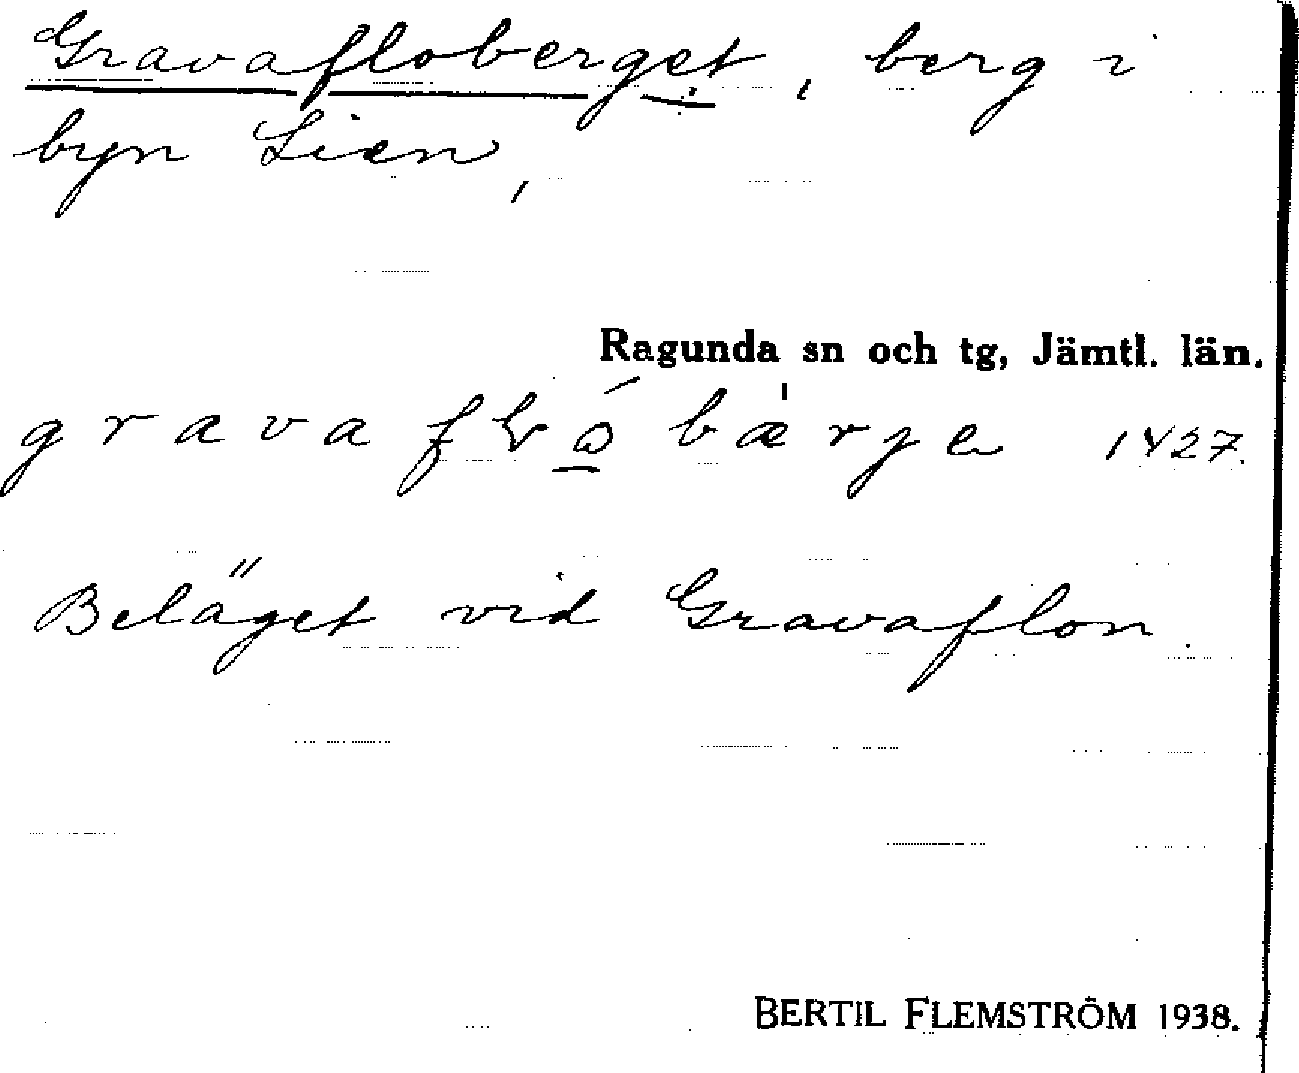 Gravafloberget, berg i
byn Lien,
Ragunda sn och tg, Jämtl. län.
1427.
Beläget vid Gravaflon.
BERTIL FLEMSTRÖM 1938.